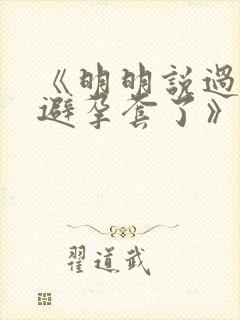 《明明說過
避孕套了》
翟道武